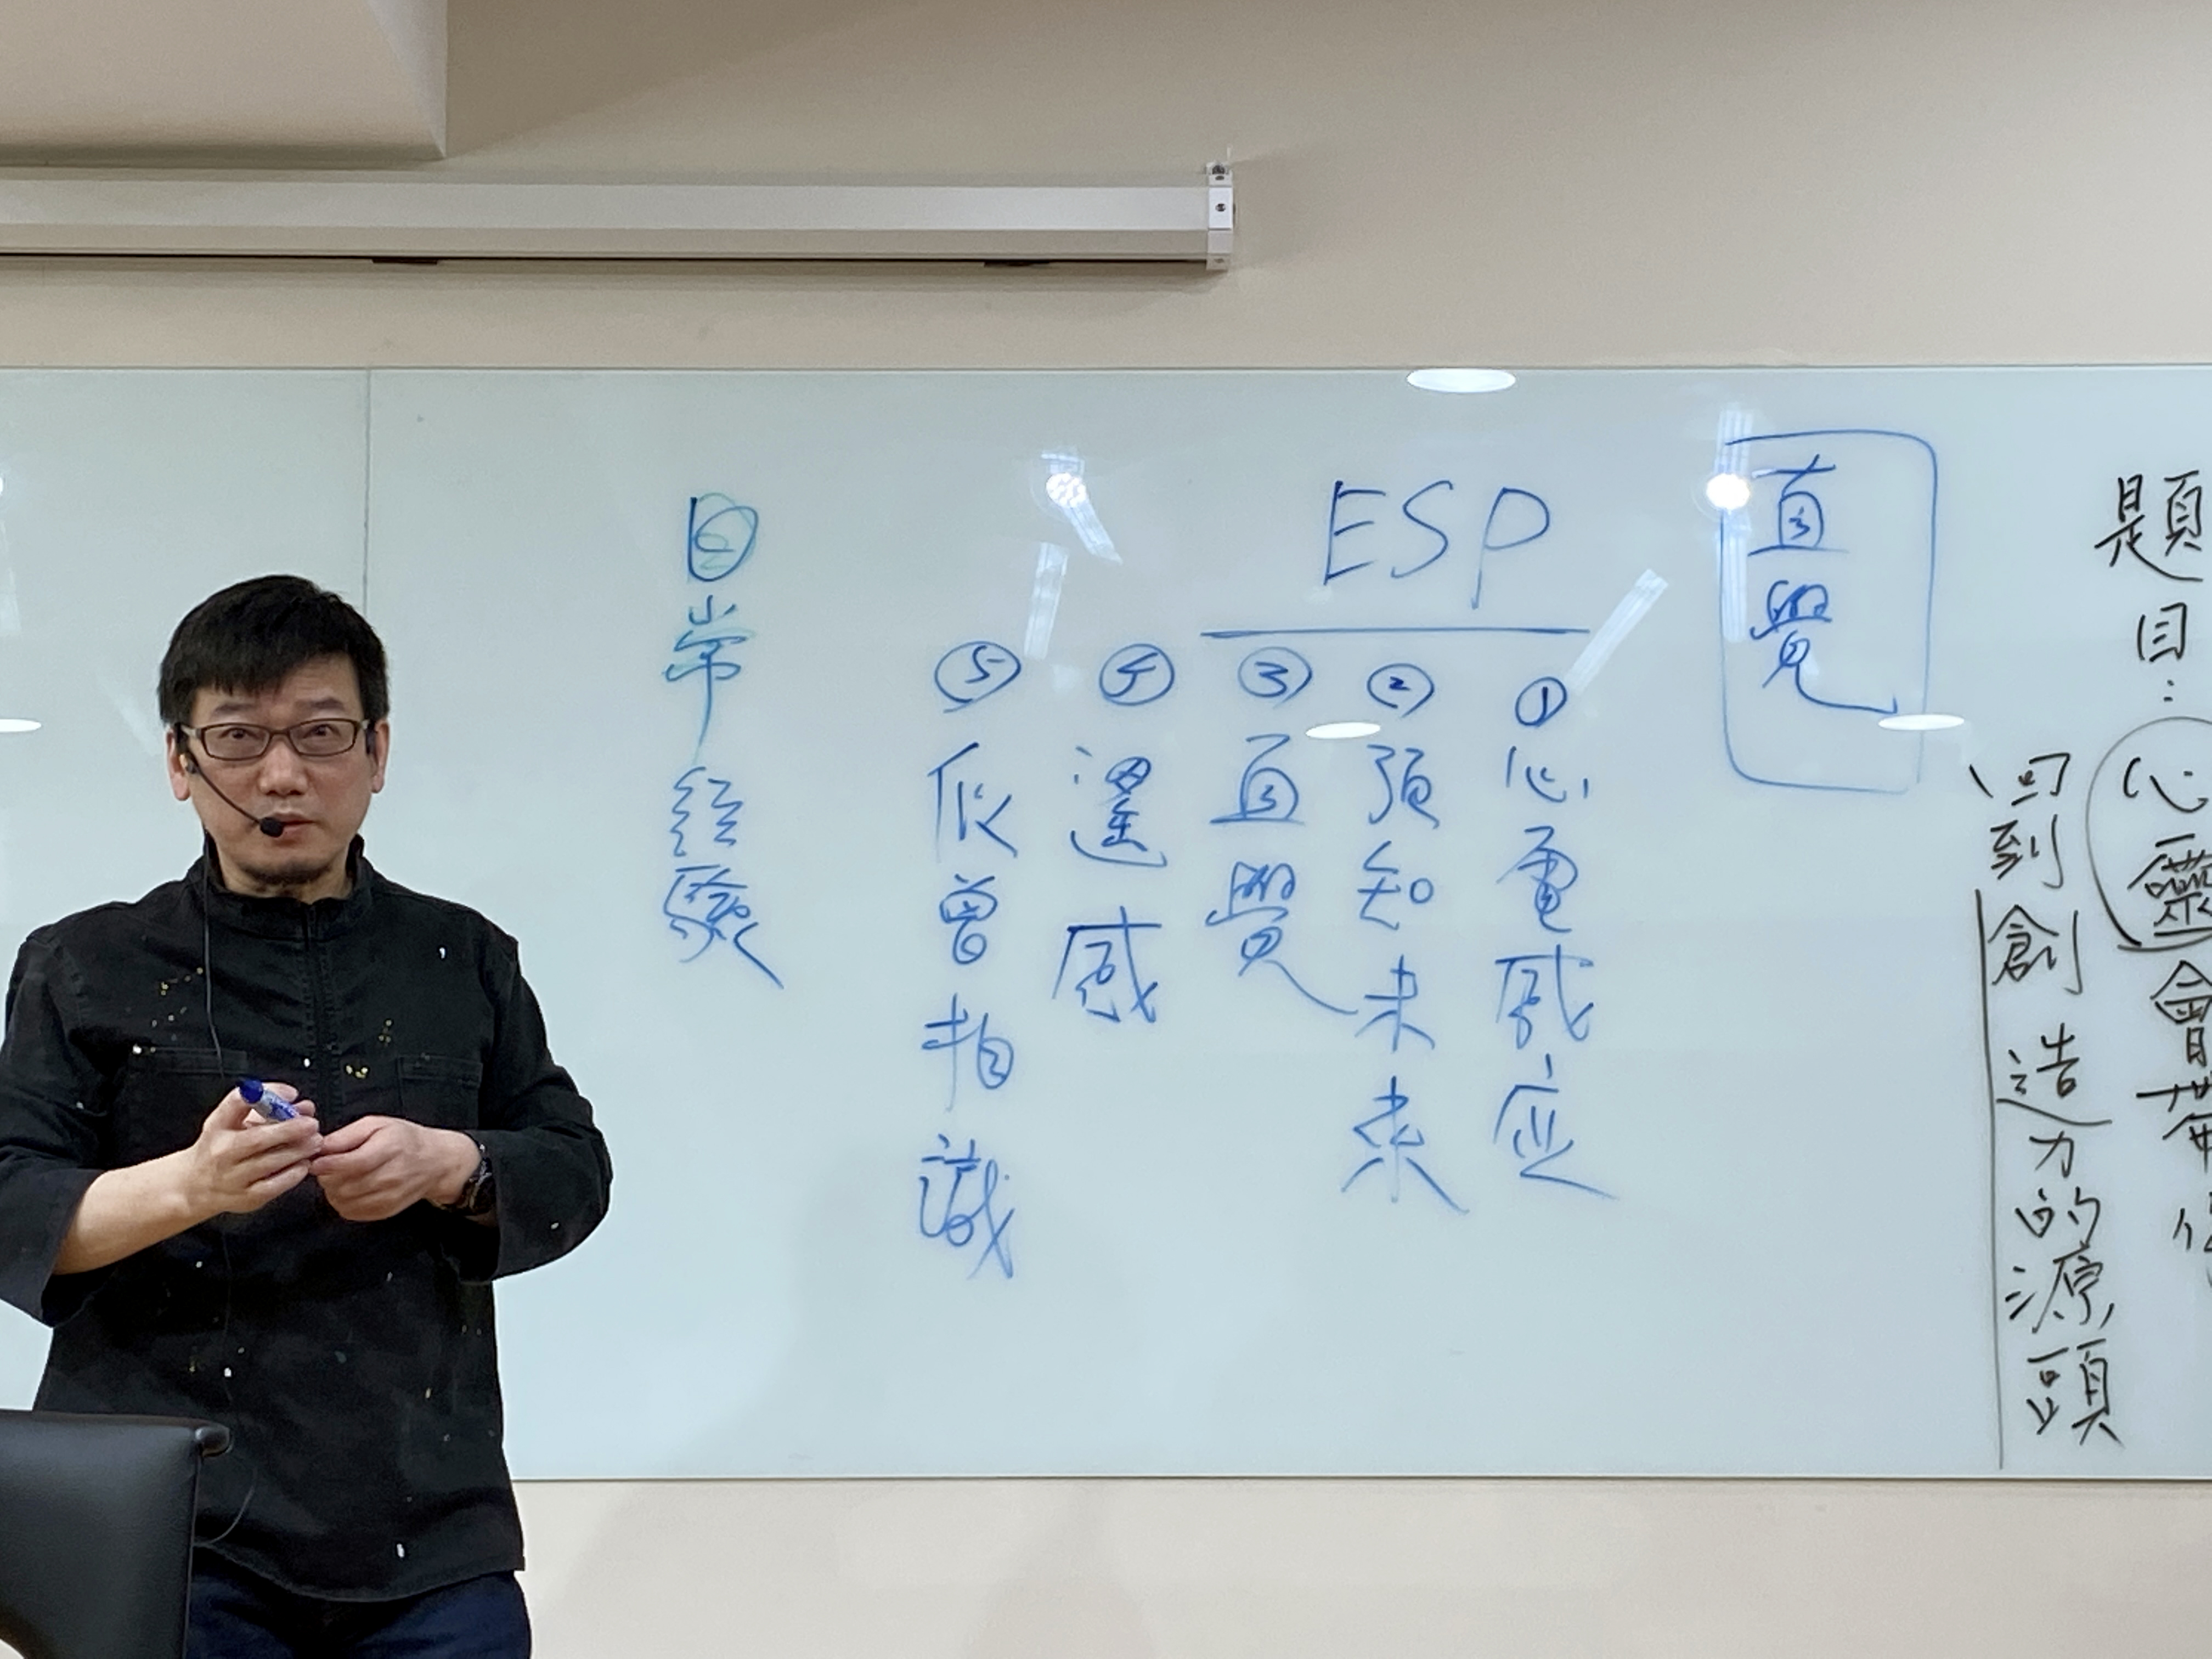 題目：
心靈會帶
回到創造力的源頭
直覺
ESP
①心電感應
②預知未來
③直覺
④遙感
⑤似曾相識
日常經驗